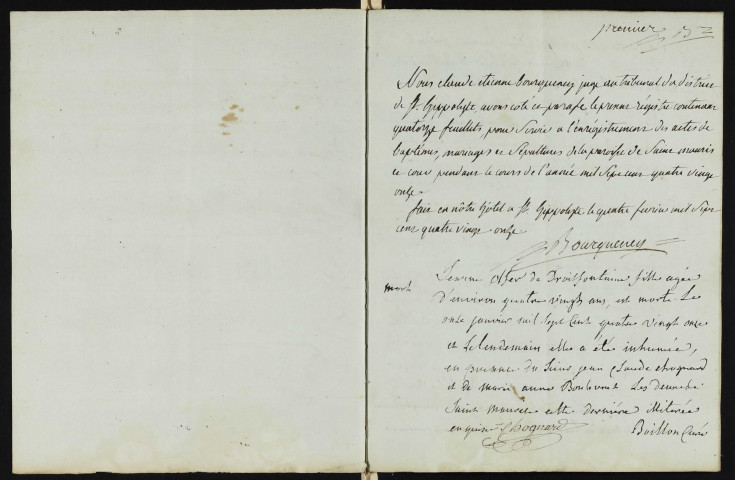 premier B
Nous claude etienne bourqueney juge au tribunal du district
de St. hippolyte avons coté et parafé le present régistre contenant
quatorze feuillets pour servir a l'enrégistrement des actes de
baptêmes, mariages et sépultures de la paroisse de Saint mauris
et cour pendant le cours de l'année mil sept cent quatre vingt
onze.
fait en nôtre hôtel a St. hippolyte le quatre fevrier mil sept
cent quatre vingt onze
Bourqueney
mort
Jeanne de Droitfontaine fille agée
d'environ quatre vingts ans, est morte Le
onze janvier mil sept cent quatre vingt onze
et Le lendemain elle a été inhumée,
en presence du Sieur jean claude chognard
et de marie anne Les deux de
Saint Maurice cette derniere illiterée
enquise Chognard Boillon Curé